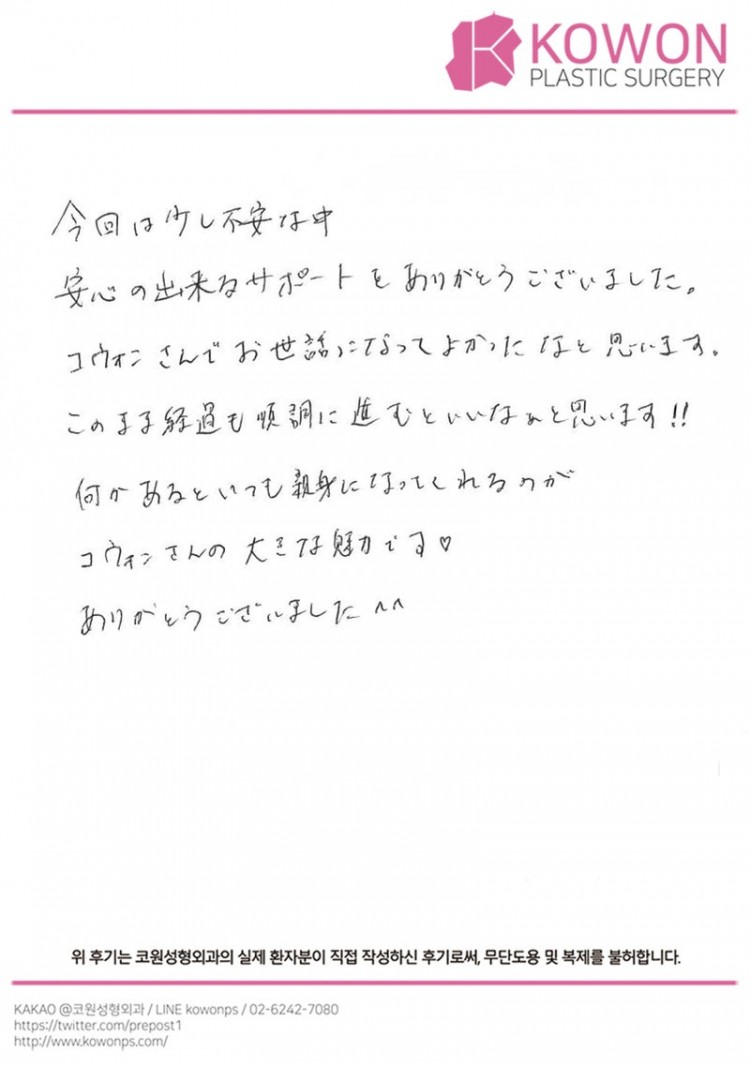 KOWON
PLASTIC SURGERY
今回は少し不安な中
安心の出来るサポートをありがとうございました。
コウォンさんでお世話になってよかったなと思います。
このまま経過も順調に進むといいなぁと思います!!
何かあるといつも親身になってくれるのが
コウォンさんの大きな魅力です♡
ありがとうございました^^
위 후기는 코원성형외과의 실제 환자분이 직접 작성하신 후기로써, 무단도용 및 복제를 불허합니다.
KAKAO @코원성형외과 / LINE kowonps / 02-6242-7080
https://twitter.com/prepost1
http://www.kowonps.com/